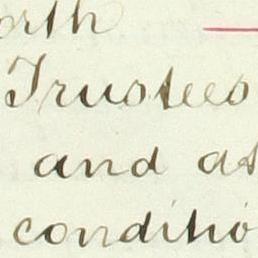 orth
Trustees
and as
conditio